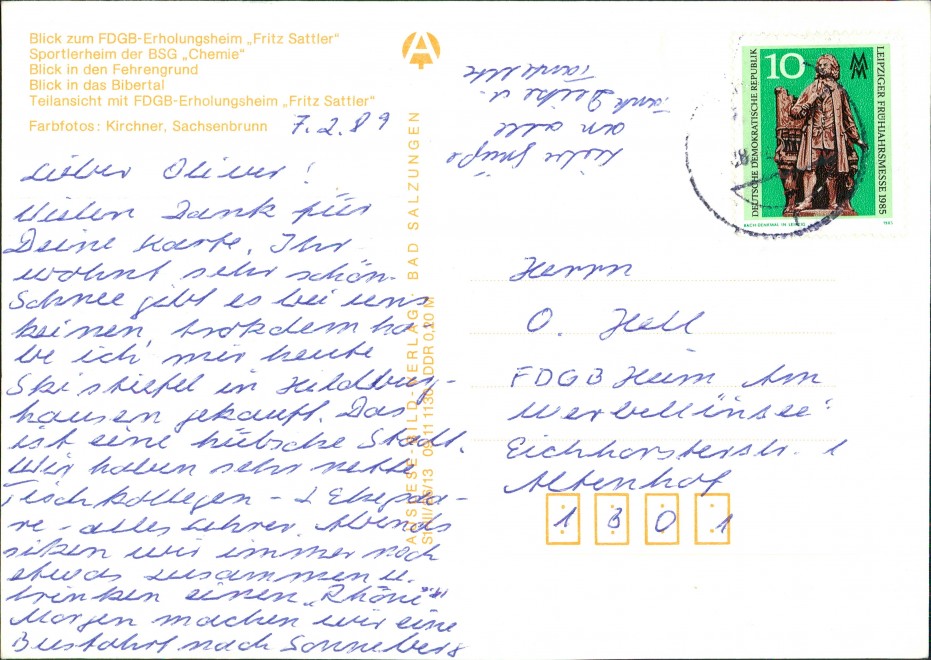 Blick zum FDGB-Erholungsheim „Fritz Sattler“
Sportlerheim der BSG „Chemie“
Blick in den Fehrengrund
Blick in das Bibertal
Teilansicht mit FDGB-Erholungsheim „Fritz Sattler“
Farbfotos: Kirchner, Sachsenbrunn
7.2.89
Lieber Oliver!
Vielen Dank für
Deine Karte. Ihr
wohnt sehr schön.
Schnee gibt es bei uns
keinen, trotzdem ha-
be ich mir heute
Skistiefel in Hildburg-
hausen gekauft. Das
ist eine hübsche Stadt.
Wir haben sehr nette
Tischkollegen - 2 Ehepaa-
re - alles Lehrer. Abends
sitzen wir immer noch
etwas zusammen u.
trinken einen „Rhöni“.
Morgen machen wir eine
Busfahrt nach Sonneberg
Liebe Grüße
an alle
u.
AUSLESE-BILD-VERLAG · BAD SALZUNGEN
DDR 0,20 M
A
10
DEUTSCHE DEMOKRATISCHE REPUBLIK
LEIPZIGER FRÜHJAHRSMESSE 1985
MM
BACH-DENKMAL IN LEIPZIG
1985
Herrn
O. Hell
FDGB Heim "Am
Werbellinsee"
Eichhorsterstr. 1
Altenhof
1301